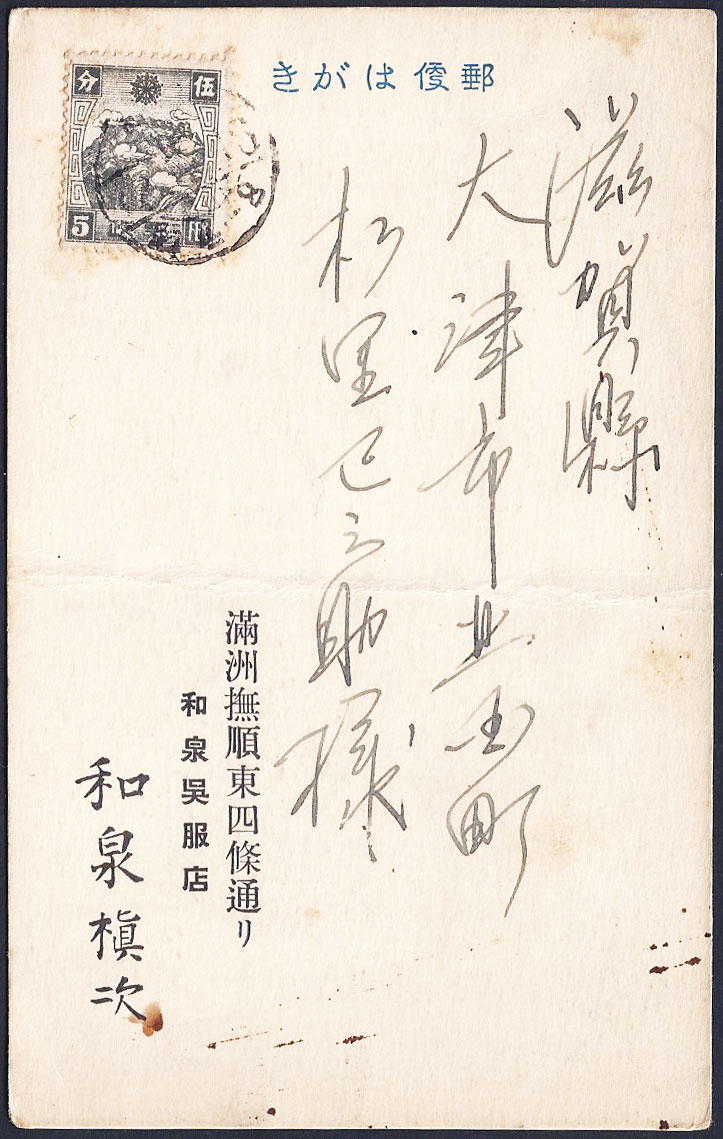 郵便はがき
伍分
5
滋賀縣
大津市町
杉里巳之助様
滿洲撫順東四條通リ
和泉吳服店
和泉槇次